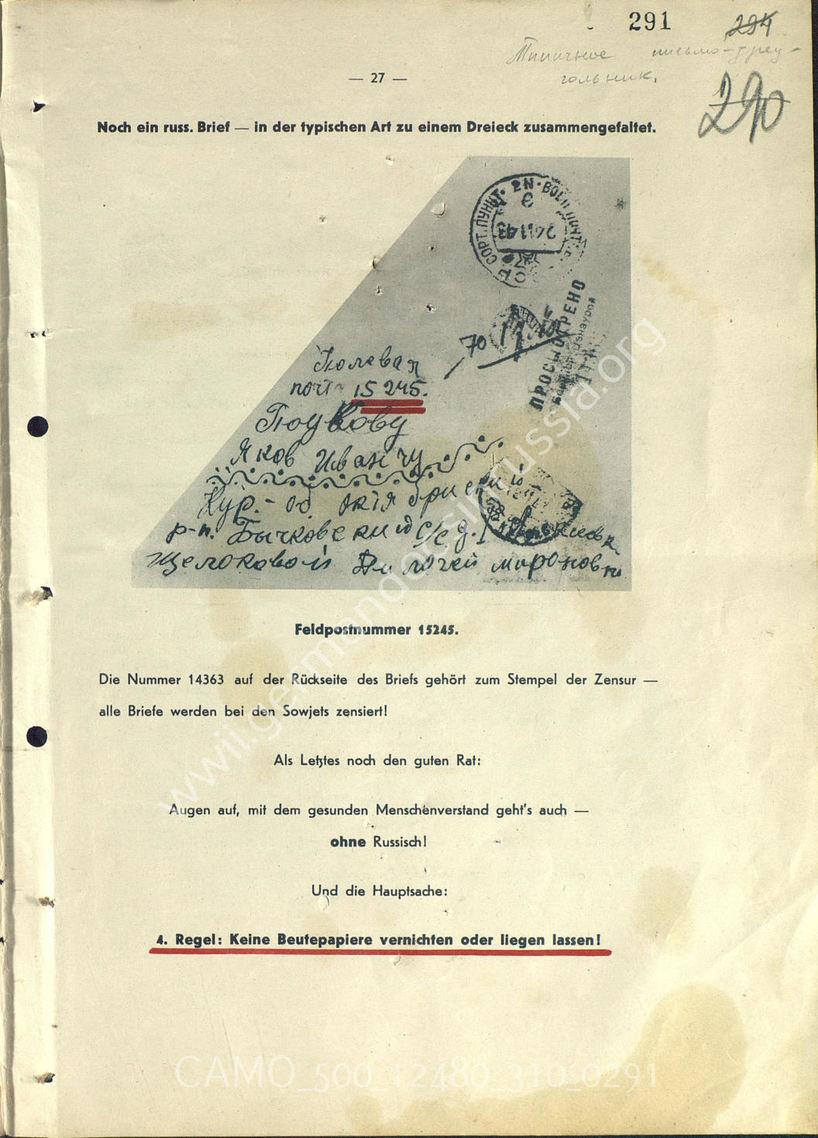 291
294
Типичное письмо-треу-
гольник.
290
— 27 —
Noch ein russ. Brief — in der typischen Art zu einem Dreieck zusammengefaltet.
24 11 43
ПРОСМОТРЕНО
70
Полевая
почт 15245.
Яков Иванчу
Кур.- об
р-н. Бычковский с/с д.
Щелоковой
мироновн
Feldpostnummer 15245.
Die Nummer 14363 auf der Rückseite des Briefs gehört zum Stempel der Zensur —
alle Briefe werden bei den Sowjets zensiert!
Als Letztes noch den guten Rat:
Augen auf, mit dem gesunden Menschenverstand geht's auch —
ohne Russisch!
Und die Hauptsache:
4. Regel: Keine Beutepapiere vernichten oder liegen lassen!
wwii.germandocsinrussia.org
CAMO_500_12480_310_0291